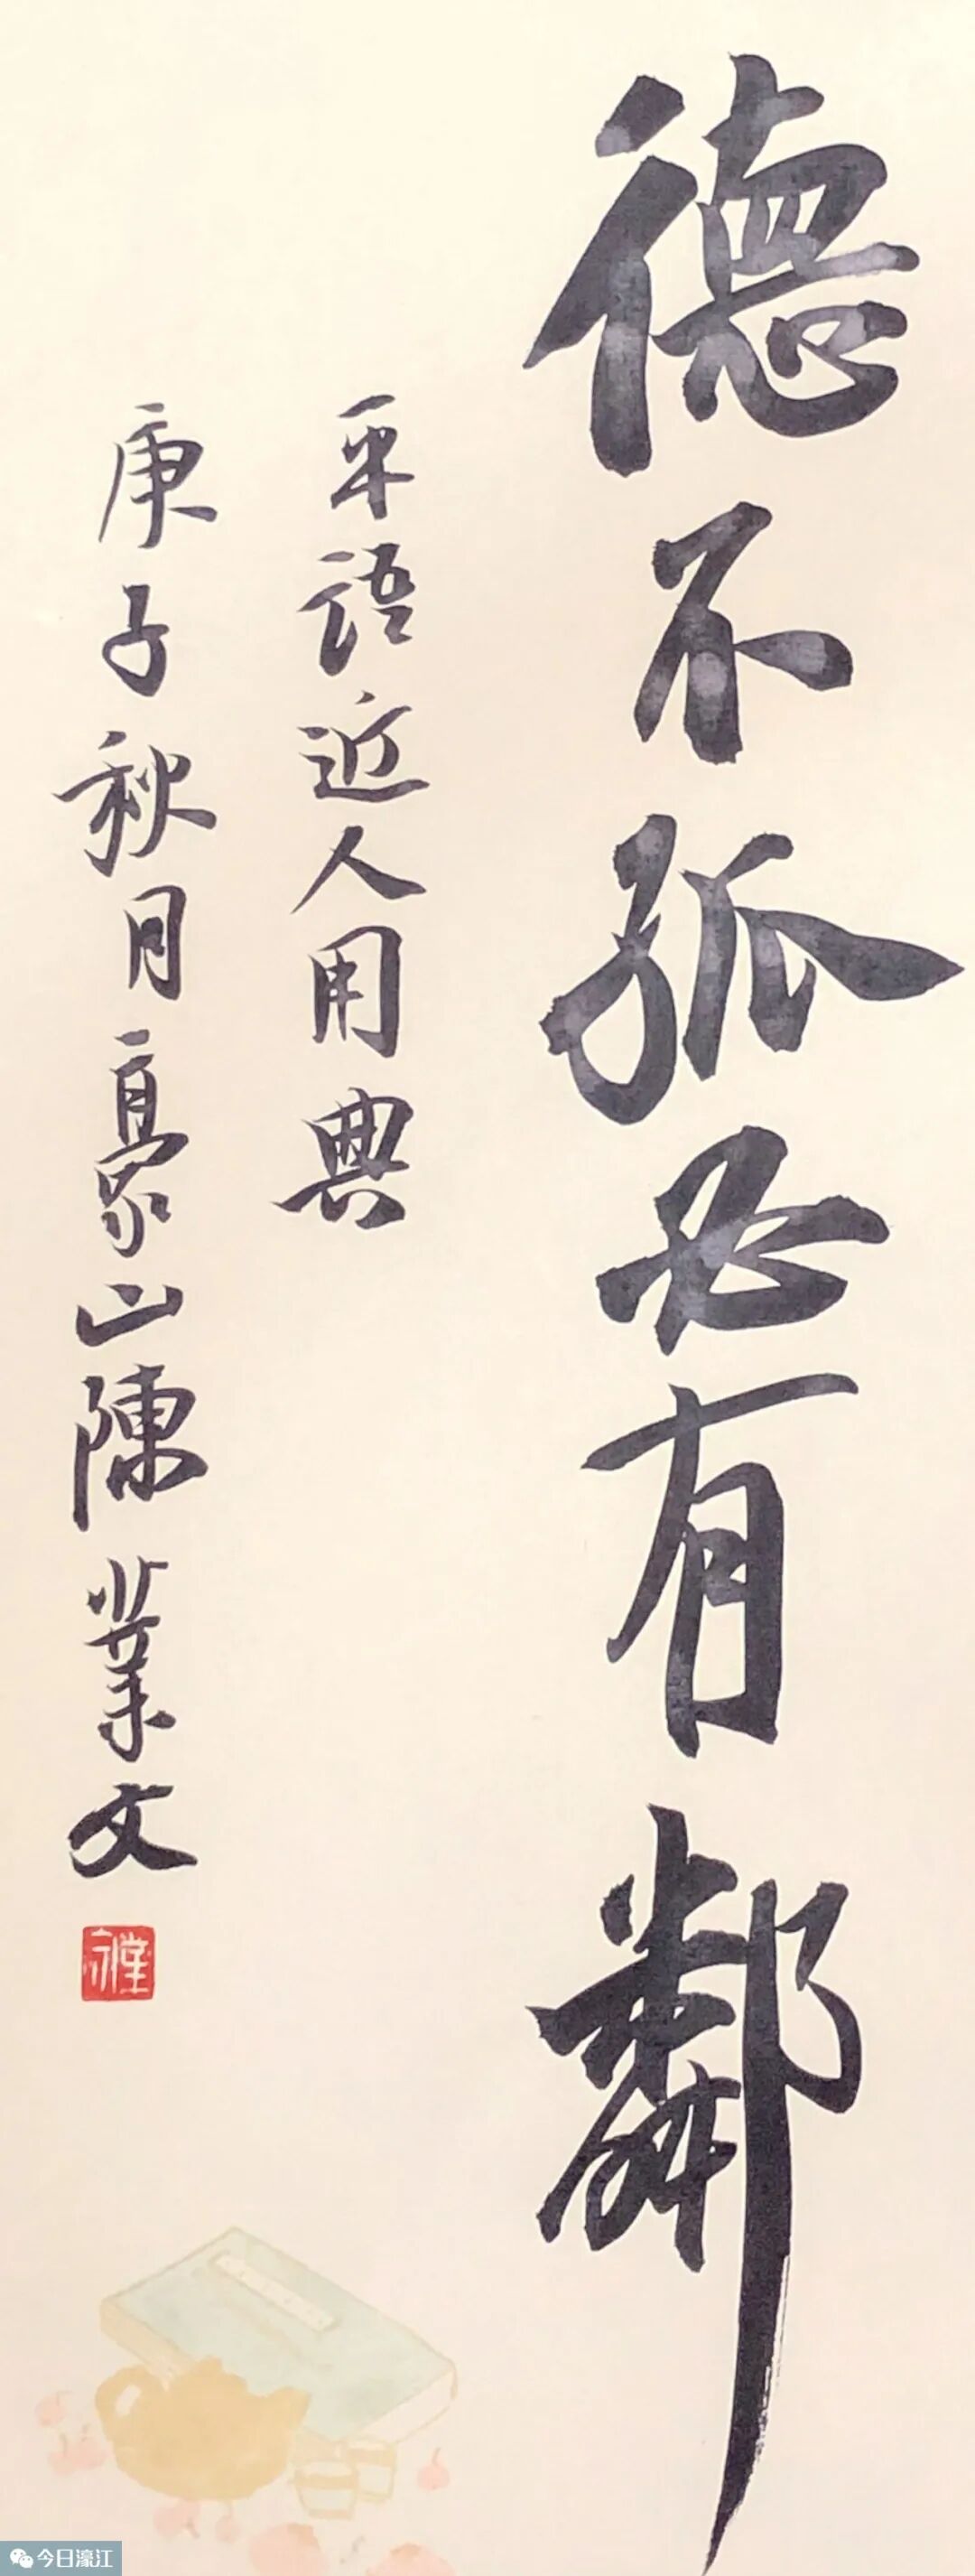 德不孤必有鄰
平语近人用典
庚子秋月豪山陳業文
今日濠江